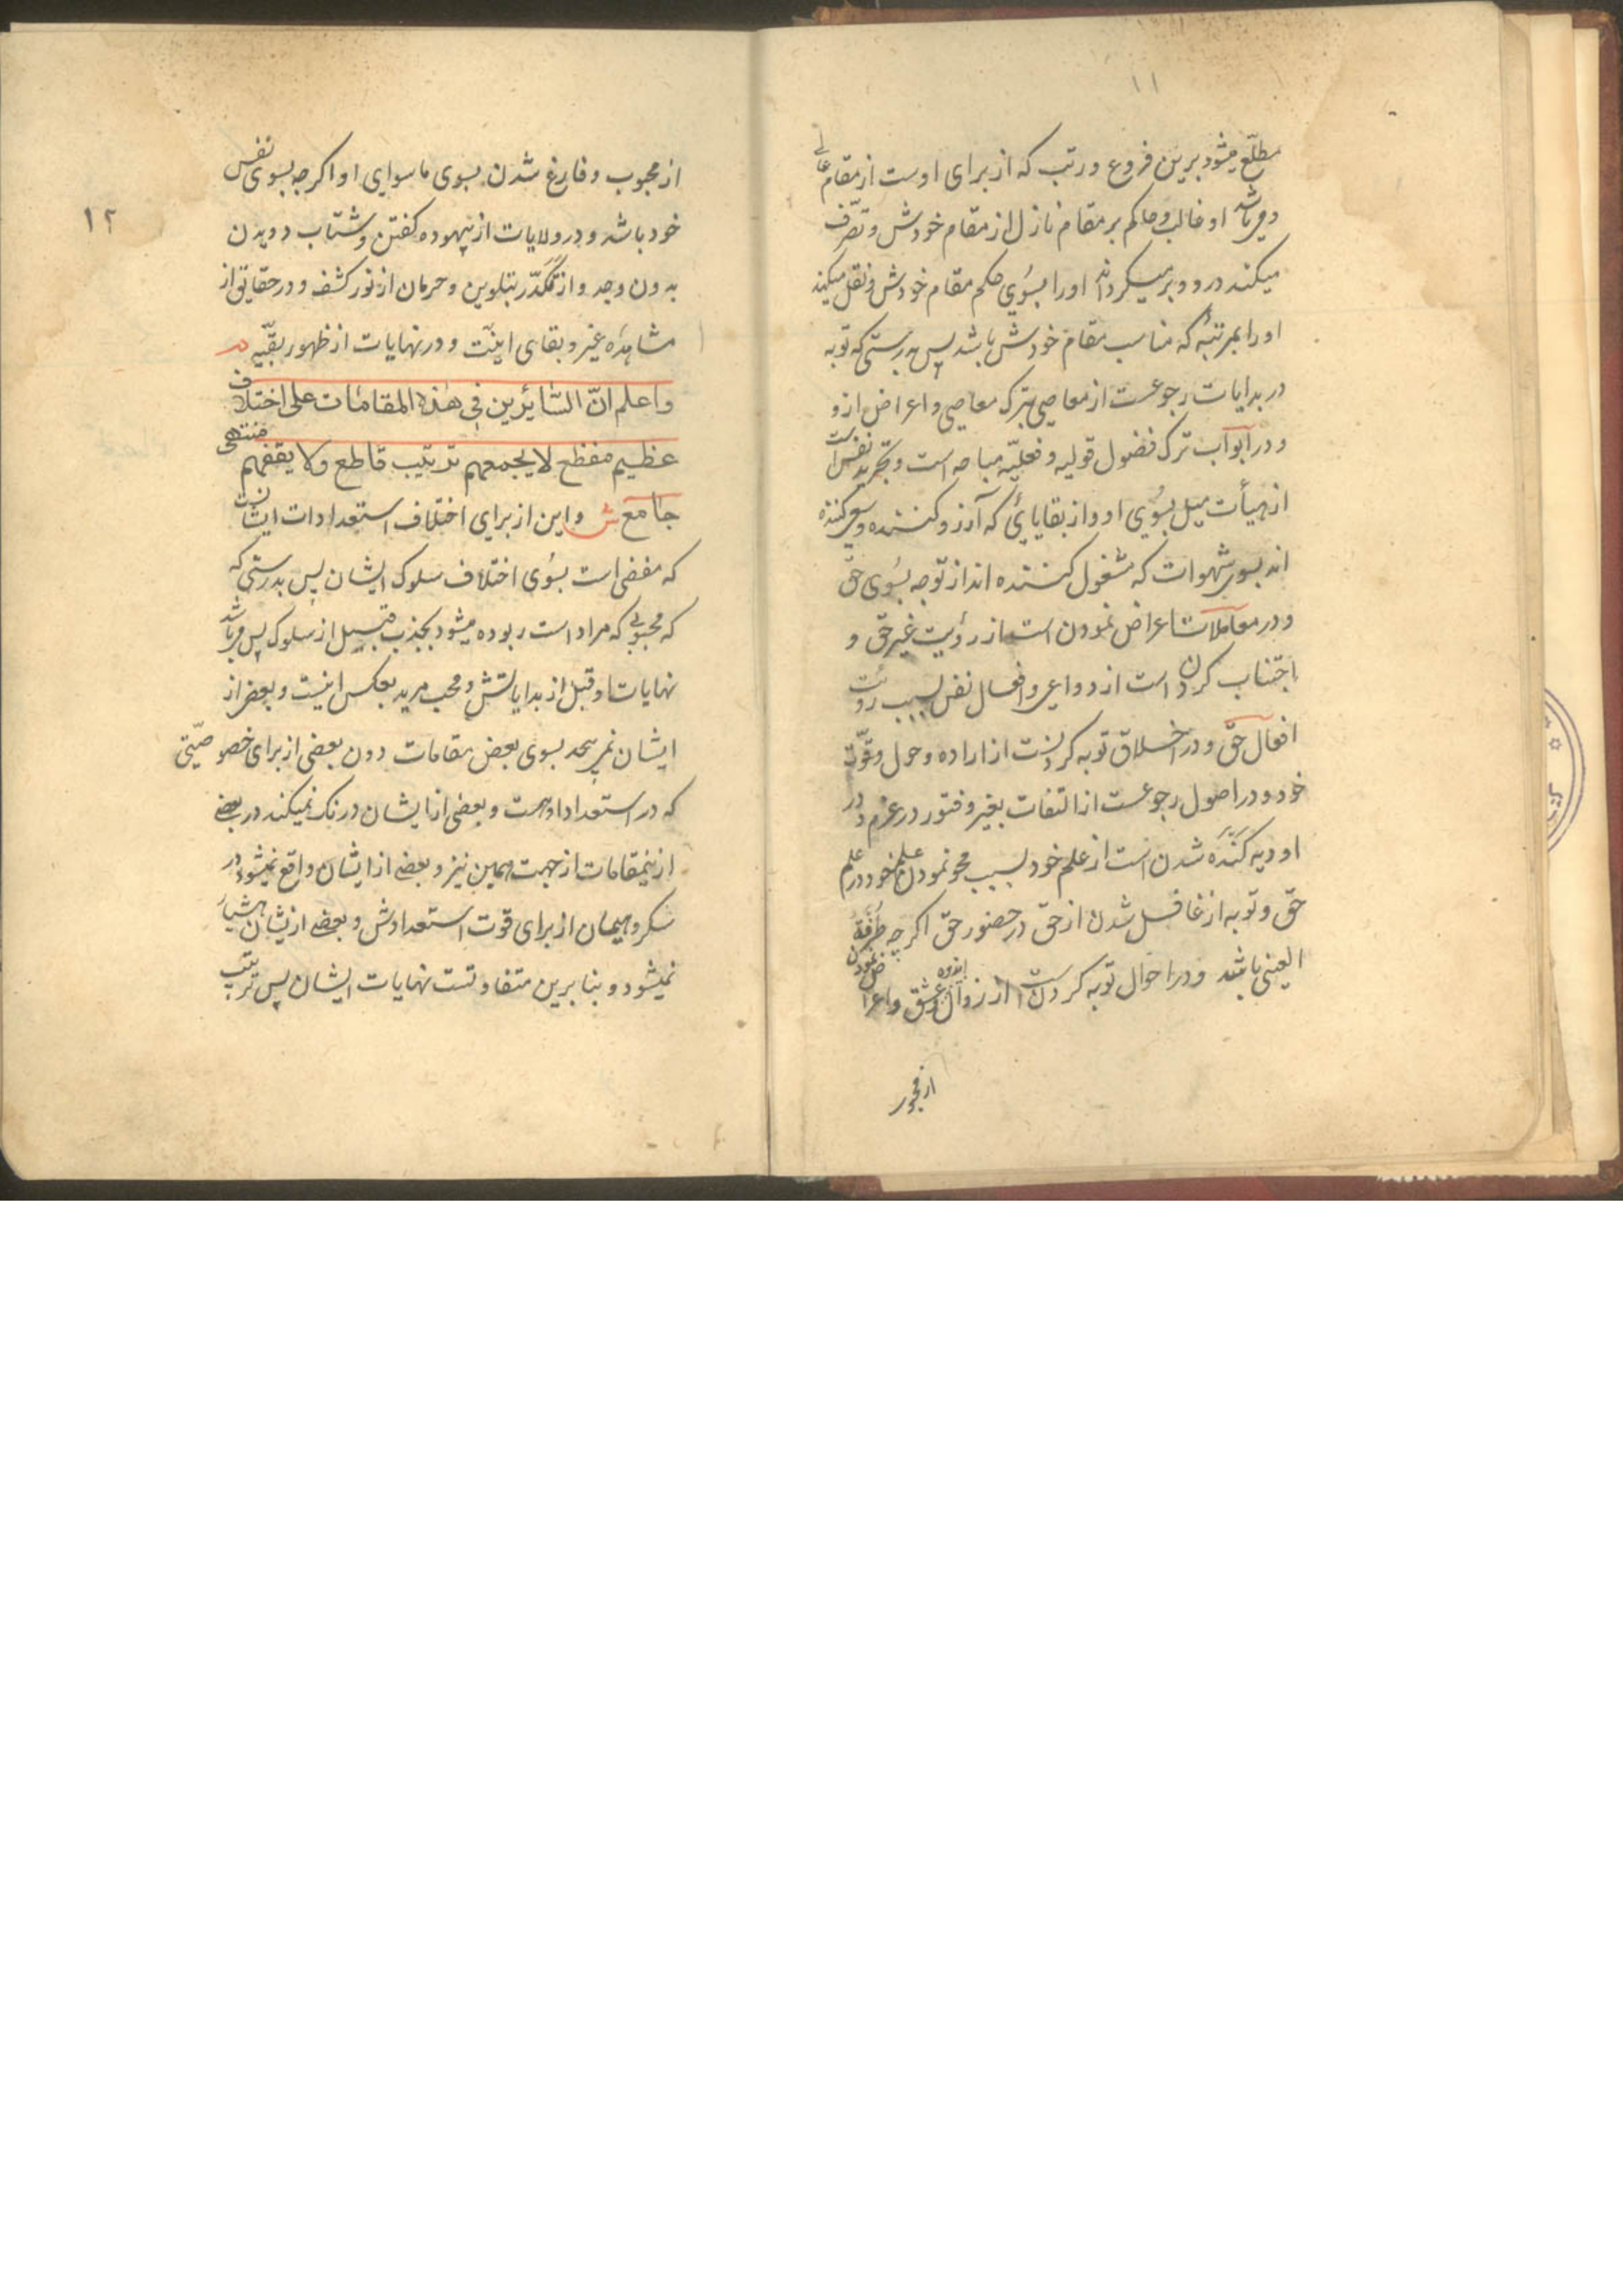 ۱۱
مطلع میشود برین فروع و رتب که از برای اوست از مقام عالی
و میباشد او غالب و حاکم بر مقام نازل از مقام خودش و تصرّف
میکند درو و برمیکرداند اورا بسوی حکم مقام خودش و نقل میکند
اورا بمرتبهٔ که مناسب مقام خودش باشد پس بدرستی که توبه
در بدایات رجوعست از معاصی بترک معاصی و اعراض ازو
و در ابواب ترک فضول قولیه و فعلیّه مباحه است و تجرید نفس است
از هیأت میل بسوی او و از بقایایی که آرزو کننده و سعی کننده
اند بسوی شهوات که مشغول کننده اند از توجه بسوی حق
و در معاملات اعراض نمودن است از رؤیت غیر حق و
اجتناب کردن است از دواعی و افعال نفس بسبب رؤیت
افعال حقّ و در اخلاق توبه کردنست از اراده و حول و قوّت
خود و در اصول رجوعست از التفات بغیر و فتور در عزم و در
اودیه کنده شدن است از علم خود بسبب محو نمودن علم خود در علم
حق و توبه از غافل شدن از حق در حضور حق اکرچه طرفة
العینی باشد و در احوال توبه کردن است از زوال اندوه عشق و اعراض نمودن
از محبوب
۱۲
از محبوب و فارغ شدن بسوی ماسوای او اکرچه بسوی نفس
خود باشد و در ولایات از بیهوده کفتن و شتاب دویدن
بدون وجد و از تکدّر بتلوین و حرمان از نور کشف و در حقایق از
مشاهدهٔ غیر و بقای انیّت و در نهایات از ظهور بقیّه م
واعلم انّ السّائرین فی هذه المقامات علی اختلاف
عظیم مفظع لا یجمعهم ترتیب قاطع ولا یقفهم منتهی
جامع ش و این از برای اختلاف استعدادات ایشانست
که مفضی است بسوی اختلاف سلوک ایشان پس بدرستی که
که محبوبی که مراد است ربوده میشود بجذب قبل از سلوک پس میباشد
نهایات او قبل از بدایاتش و محب مرید بعکس اینست و بعض از
ایشان نمیرسد بسوی بعض مقامات دون بعضی از برای خصوصیّتی
که در استعداد اوست و بعضی از ایشان درنک نمیکند در بعضی
ازینمقامات از جهت همین نیز و بعضی از ایشان واقع نمیشود در
سکر و هیمان از برای قوت استعدادش و بعضی ازیشان هشیار
نمیشود و بنابرین متفاوتست نهایات ایشان پس ترتیب